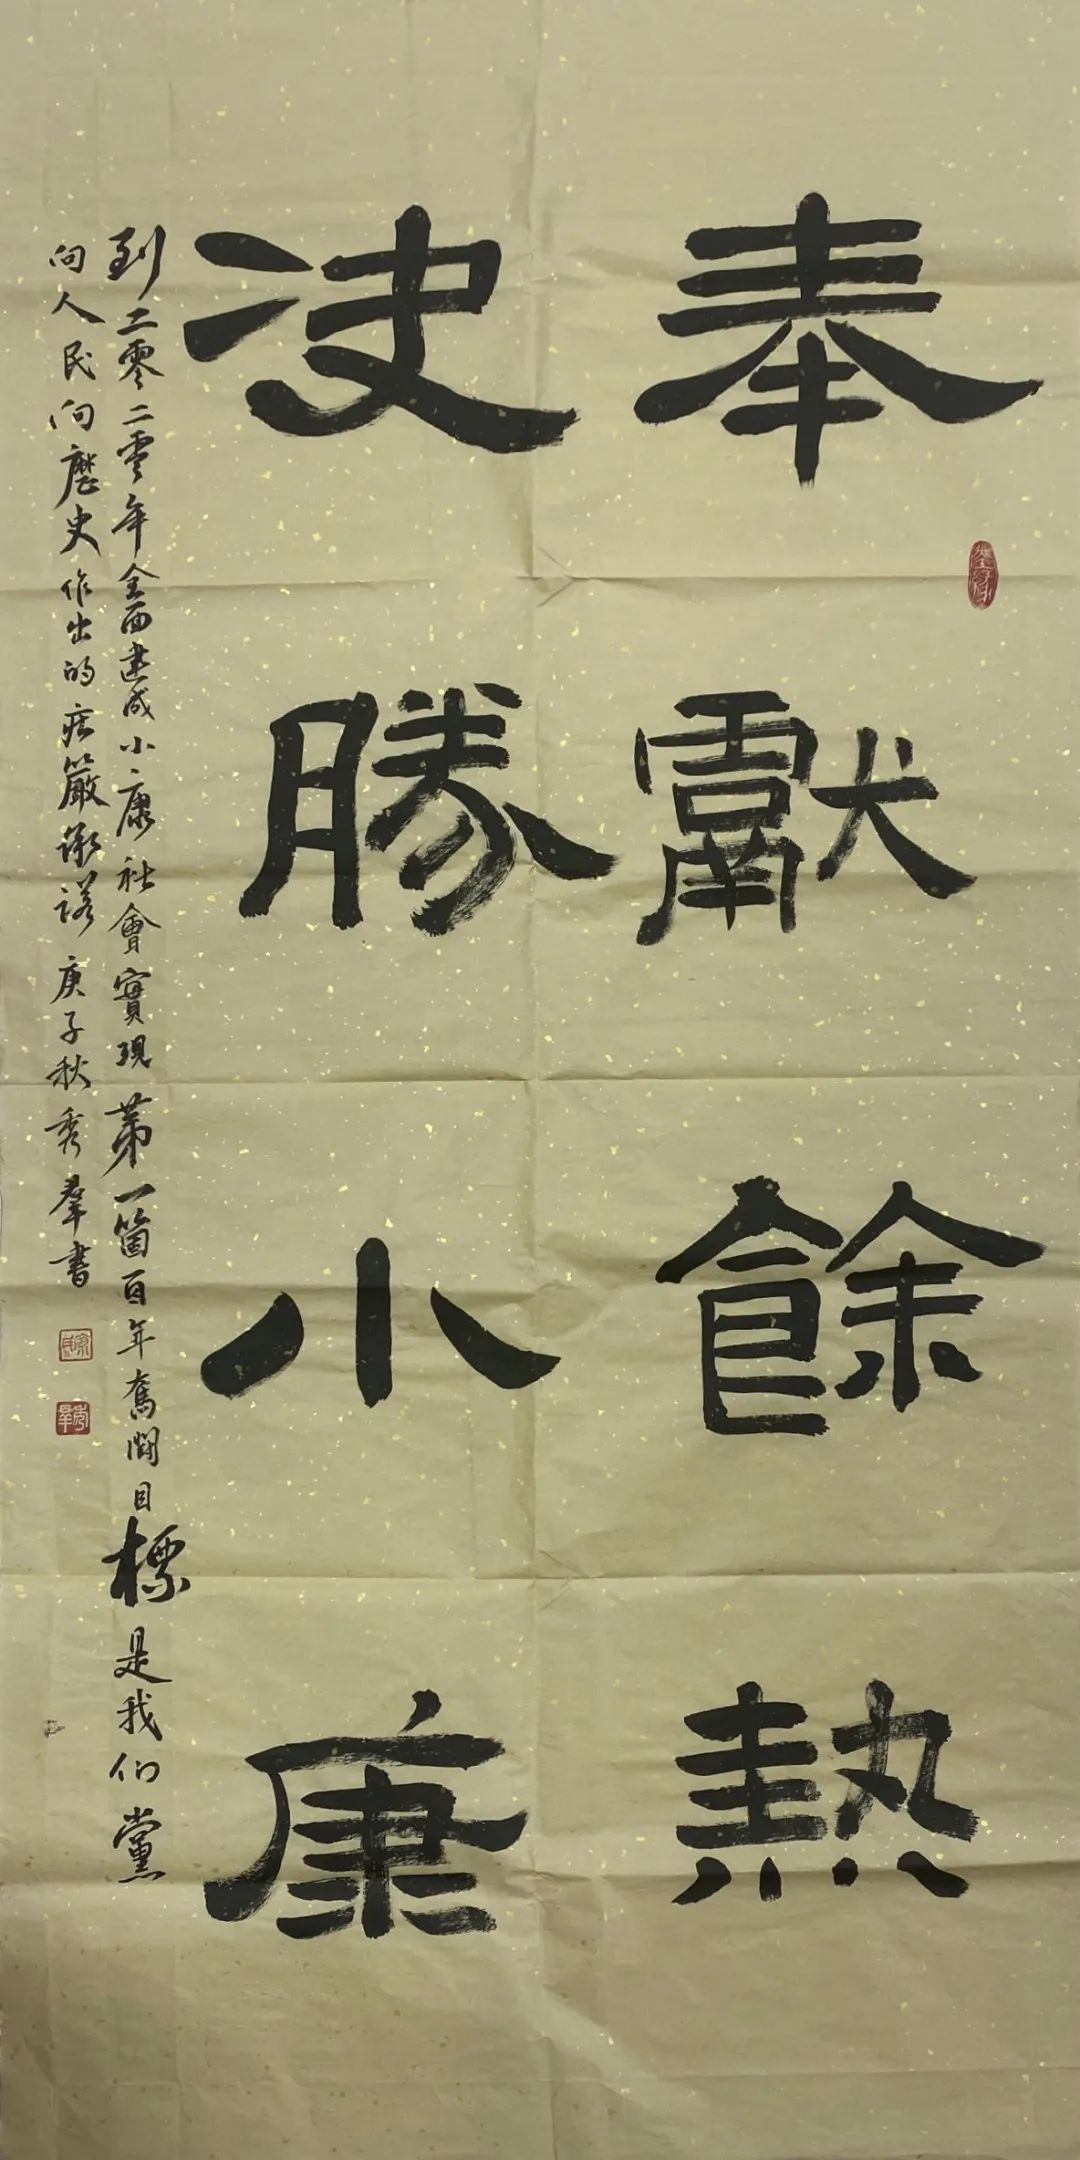 奉獻餘熱
决勝小康
到二零二零年全面建成小康社會實現第一箇百年奮鬥目標是我们黨
向人民向歷史作出的庄嚴承諾 庚子秋 秀羣書